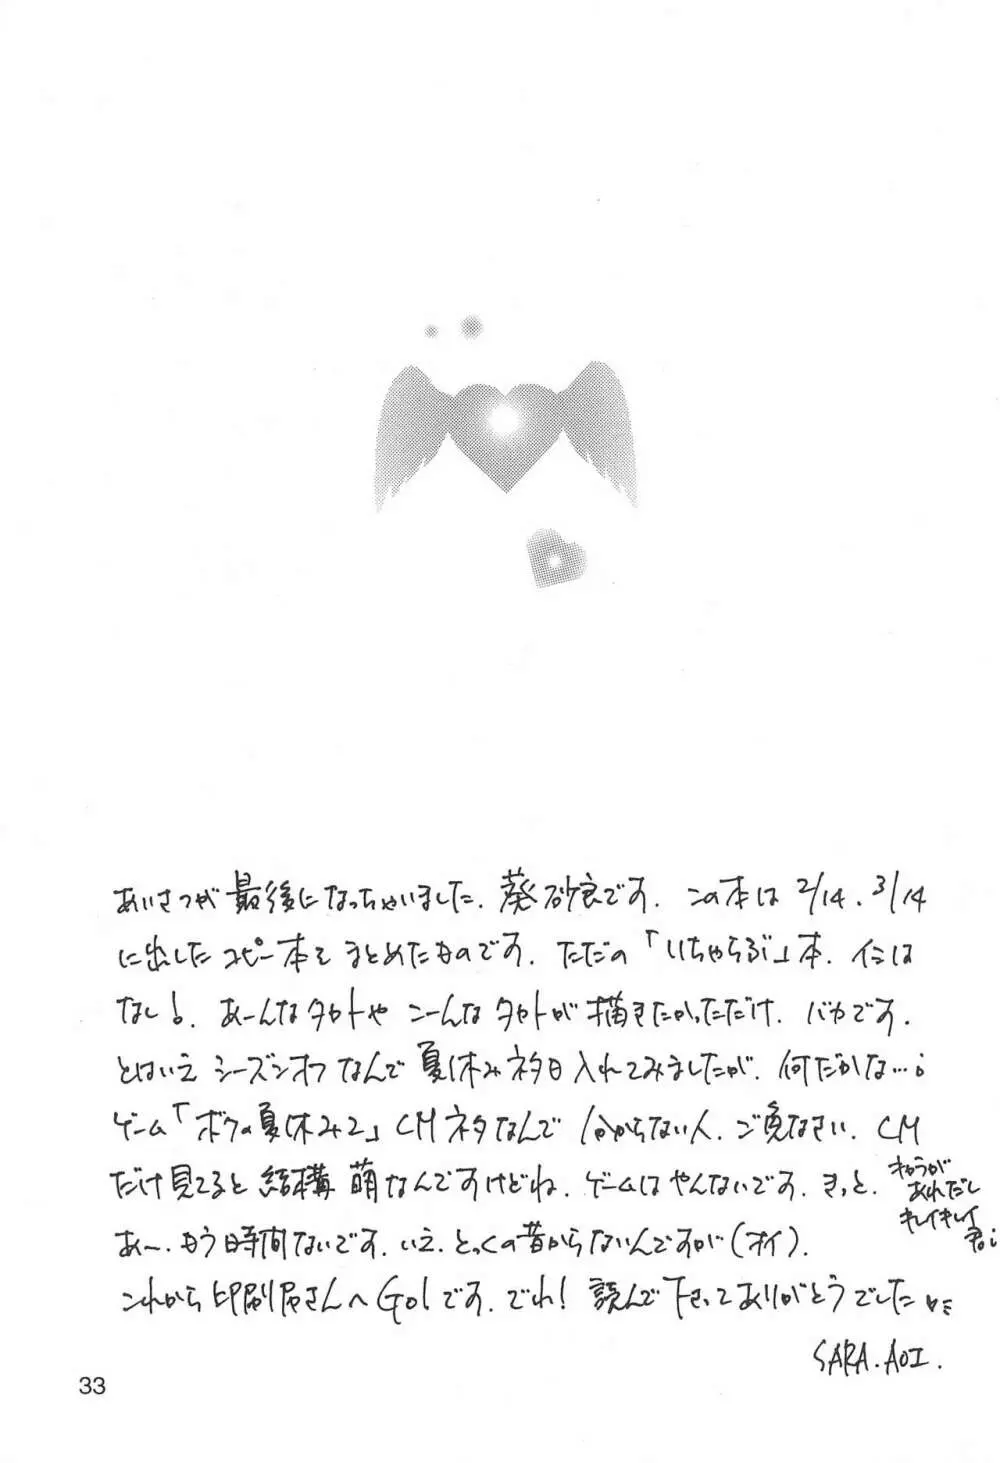 あいさつが最後になっちゃいました。葵砂良です。この本は2/14、3/14
に出したコピー本をまとめたものです。ただの「いちゃらぶ」本。イミは
なし!。あーんなタクトやこーんなタクトが描きたかっただけ。バカです。
とはいえシーズンオフなんで夏休みネタ入れてみましたが。何だかな…。
ゲーム「ボクの夏休み2」CMネタなんで分からない人、ご免なさい。CM
だけ見てると結構萌なんですけどね。ゲームはやんないです。きっと。
あれだし
キレイキレイ
あー、もう時間ないです。いえ、とっくの昔からないんですが(オイ)。
これから印刷屋さんへGo!です。でわ!読んで下さってありがとうでした
SARA.AOI.
33